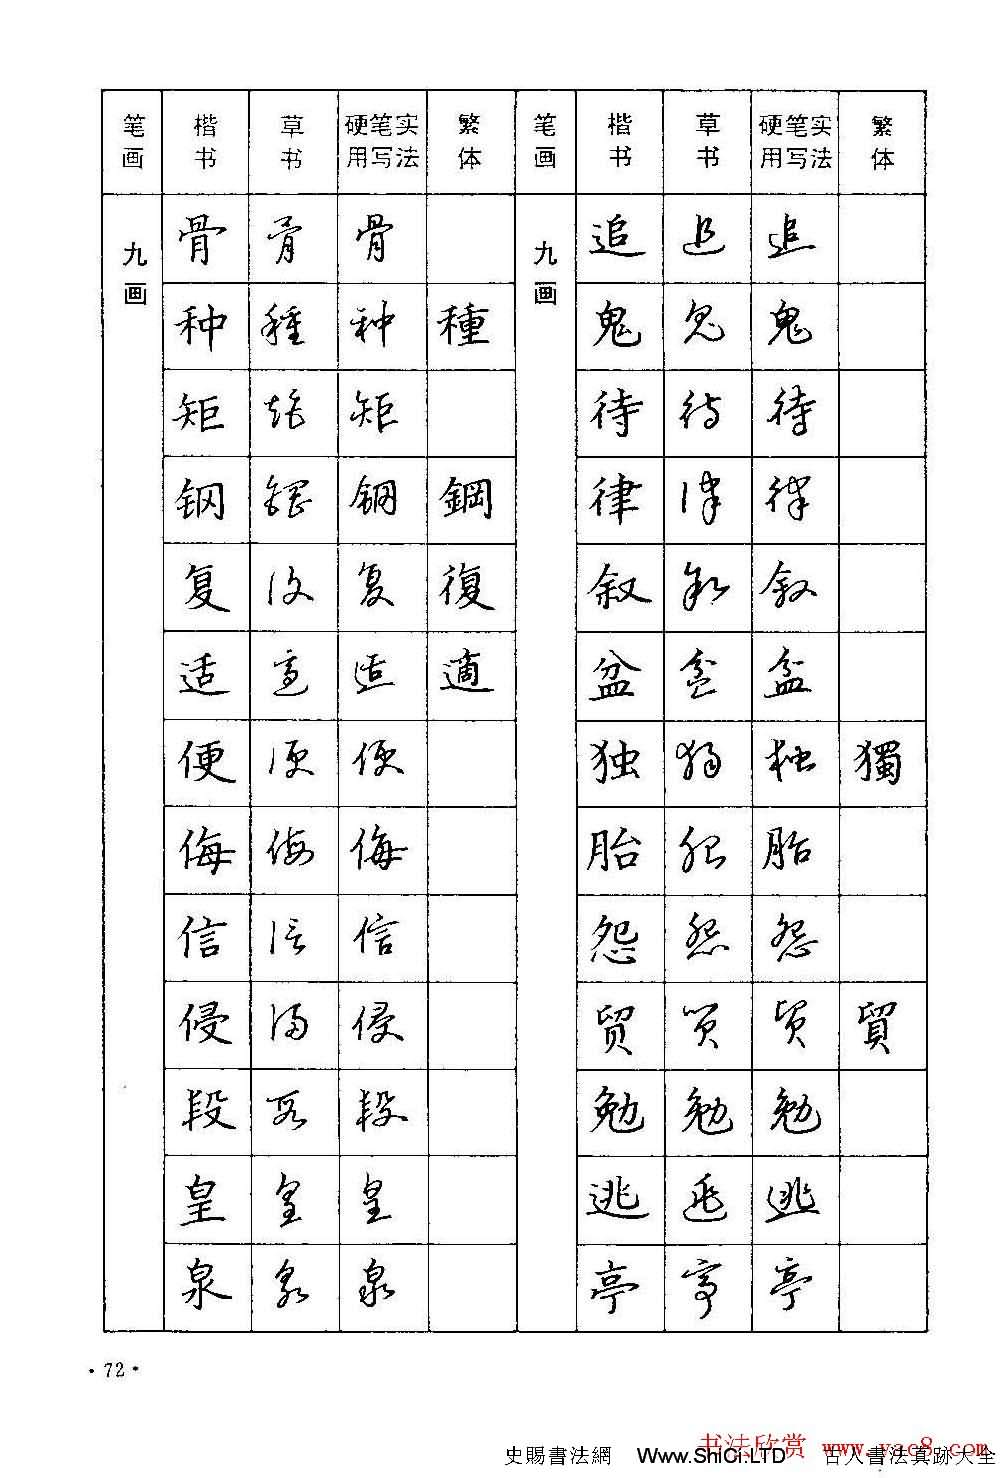 笔画 楷书 草书 硬笔实用写法 繁体 笔画 楷书 草书 硬笔实用写法 繁体
九画 骨 骨 骨 九画 追 追 追
种 種 种 種 鬼 鬼 鬼
矩 矩 矩 待 待 待
钢 鋼 钢 鋼 律 律 律
复 復 复 復 叙 叙 叙
适 適 适 適 盆 盆 盆
便 便 便 独 獨 独 獨
侮 侮 侮 胎 胎 胎
信 信 信 怨 怨 怨
侵 侵 侵 贸 贸 贸 貿
段 段 段 勉 勉 勉
皇 皇 皇 逃 逃 逃
泉 泉 泉 亭 亭 亭
·72·
书法欣赏 www.yac8.com
史賜書法網 Www.ShiCi.LTD 古人書法真跡大全